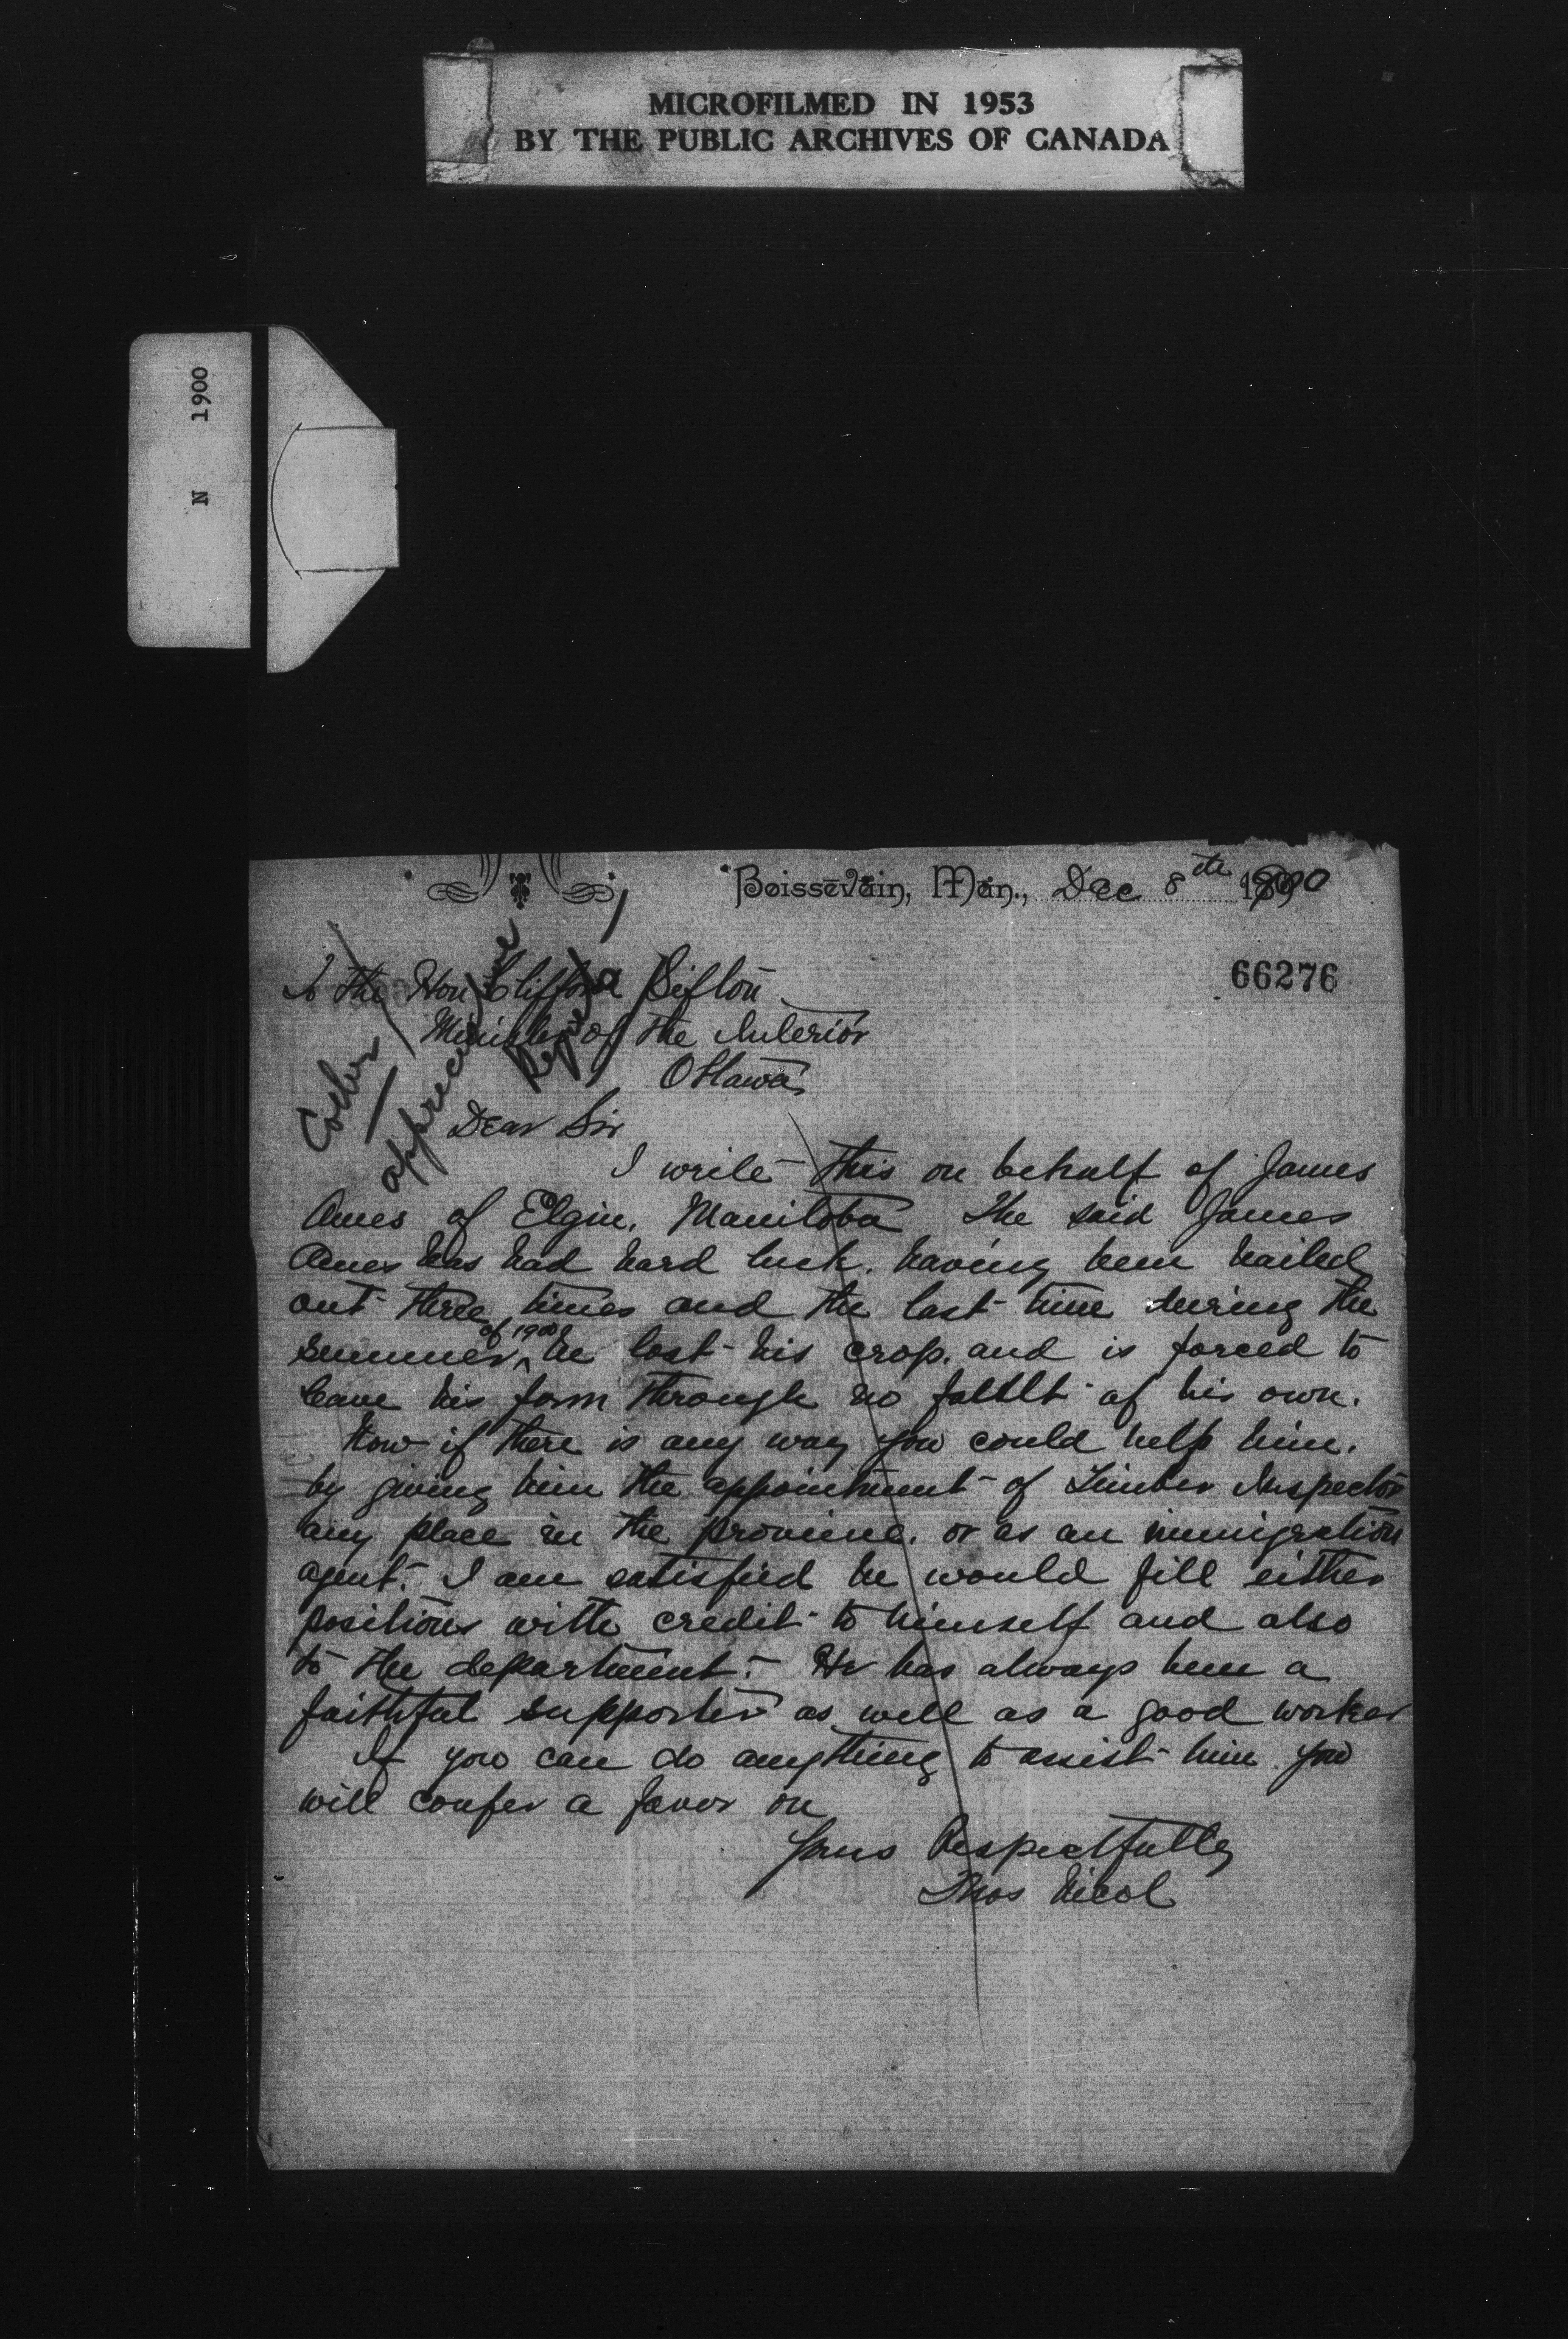 MICROFILMED IN 1953
BY THE PUBLIC ARCHIVES OF CANADA
N 1900
Boissevain, Man., Dec 8th 1900
66276
To the Hon Clifford Sifton
Minister of the Interior
Ottawa
Dear Sir
I write this on behalf of James
Ames of Elgin. Manitoba The said James
Ames has had hard luck. having been hailed
out three times and the last time during the
summer of 1900 he lost his crop. and is forced to
leave his farm through no fault of his own.
Now if there is any way you could help him.
by giving him the appointment of Timber Inspector
any place in the province. or as an immigration
agent. I am satisfied he would fill either
positions with credit to himself and also
to the department. He has always been a
faithful supporter as well as a good worker
If you can do anything to assist him you
will confer a favor on
Yours Respectfully
Thos Nicol